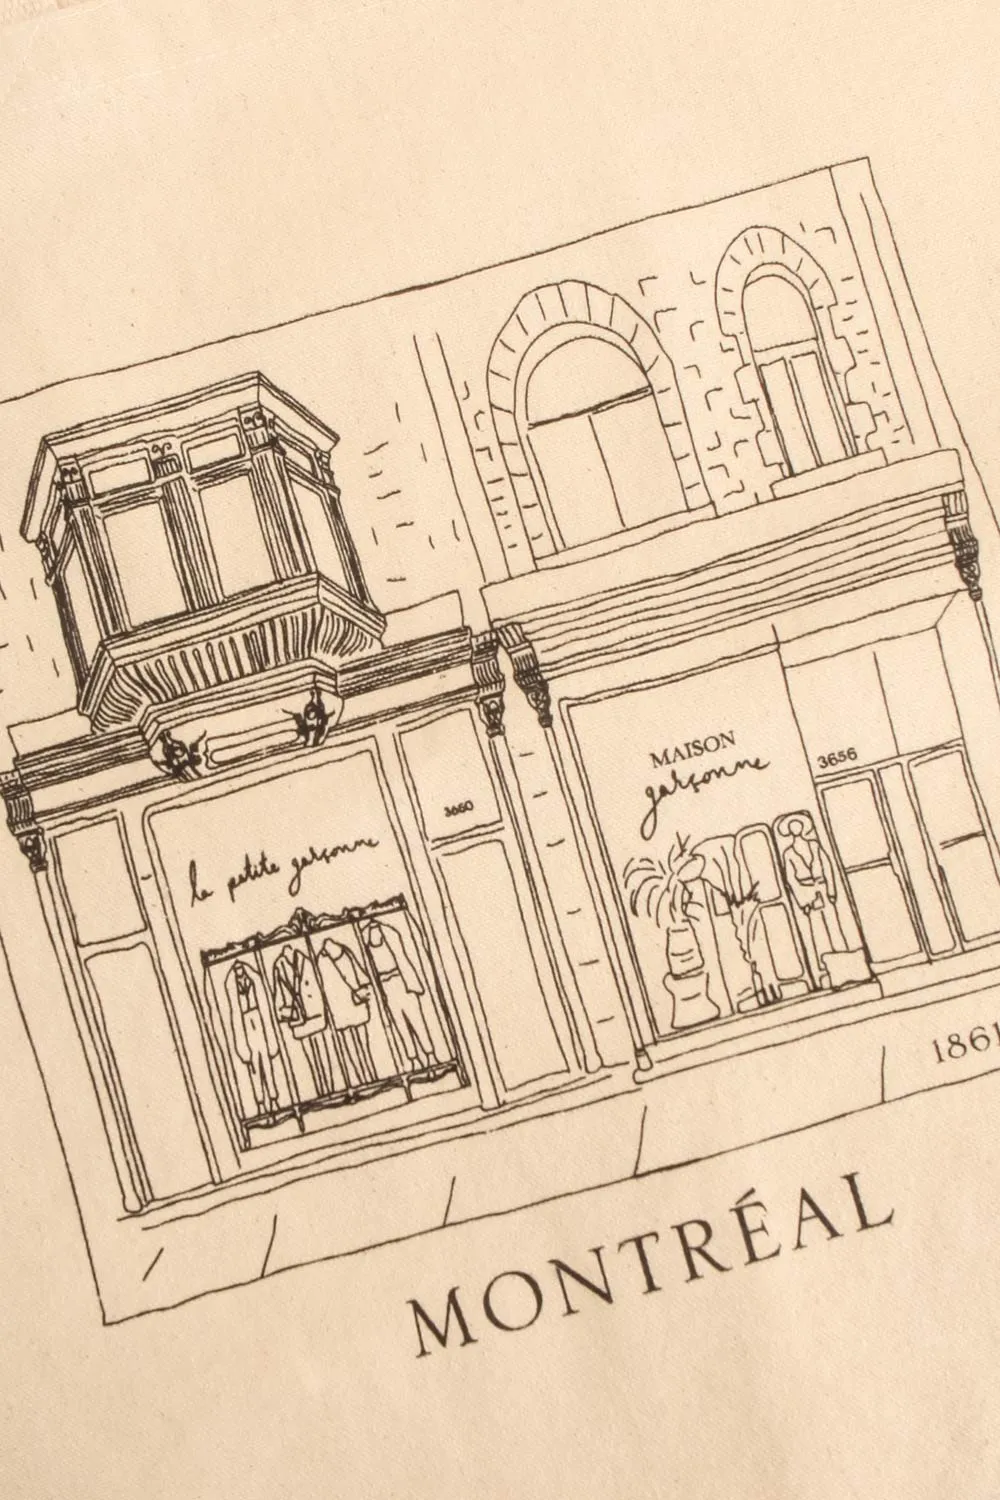 la petite garçonne
3660
MAISON
garçonne
3656
1861
MONTRÉAL